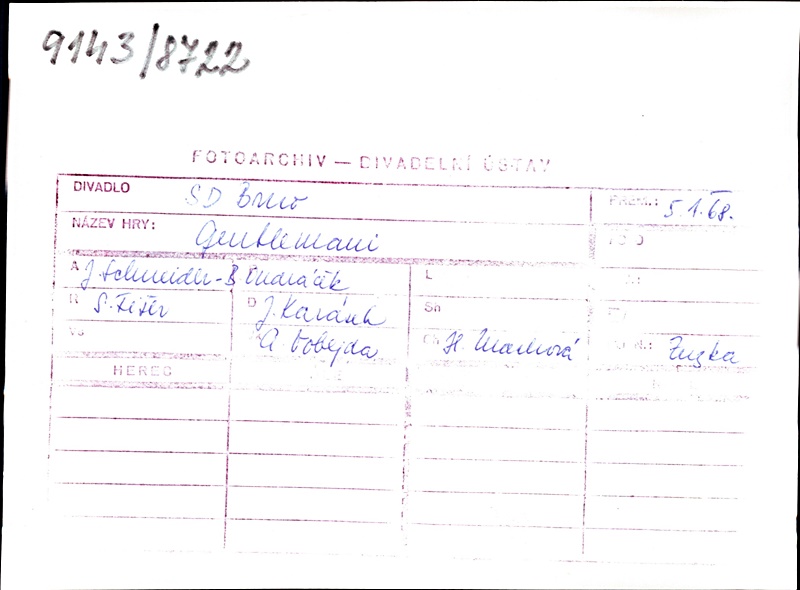 9143/8722
FOTOARCHIV — DIVADELNÍ ÚSTAV
DIVADLO SD Brno PREM.: 5.1.68.
NÁZEV HRY: Gentlemani
A J. Schneider - B. Ondráček L
R S. Fišer D J. Karásek Sh
A. Vobejda Ch H. Machová Zuzka
HEREC